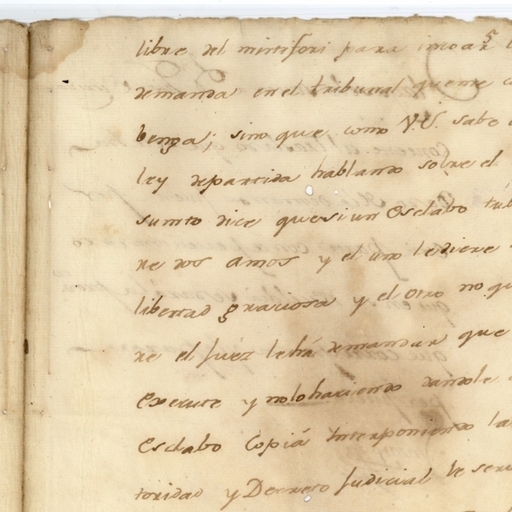 libre del mistifori para incoar
demanda en el tribunal que me
benga; sino que como V.S. sabe
ley de partida hablando sobre el
sumto dice que si un Esclabo
ne dos amos y el uno le diere
libertad graciosa y el otro no
re el Juez le há demandar que
execute y no lo haciendo dandole
Esclabo Copiá Interponiendo
toridad y Decreto Judicial le